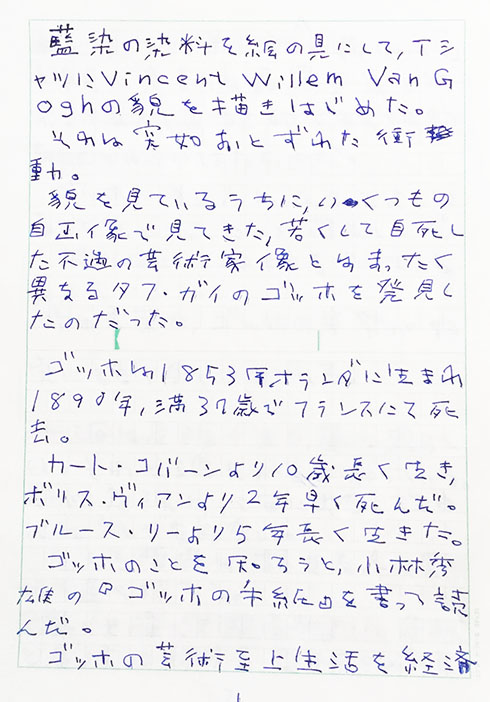 藍染の染料を絵の具にして,Tシ
ャツにVincent Willem Van G
oghの貌を描きはじめた。
それは突如おとずれた衝
動。
貌を見ているうちに,いくつもの
自画像で見てきた,若くして自死し
た不遇の芸術家像とはまったく
異なるタフ・ガイのゴッホを発見し
たのだった。
ゴッホは1853年オランダに生まれ
1890年,満37歳でフランスにて死
去。
カート・コバーンより10歳長く生き,
ボリス・ヴィアンより2年早く死んだ。
ブルース・リーより5年長く生きた。
ゴッホのことを知ろうと,小林秀
雄の『ゴッホの手紙』を買って読
んだ。
ゴッホの芸術至上生活を経済
1